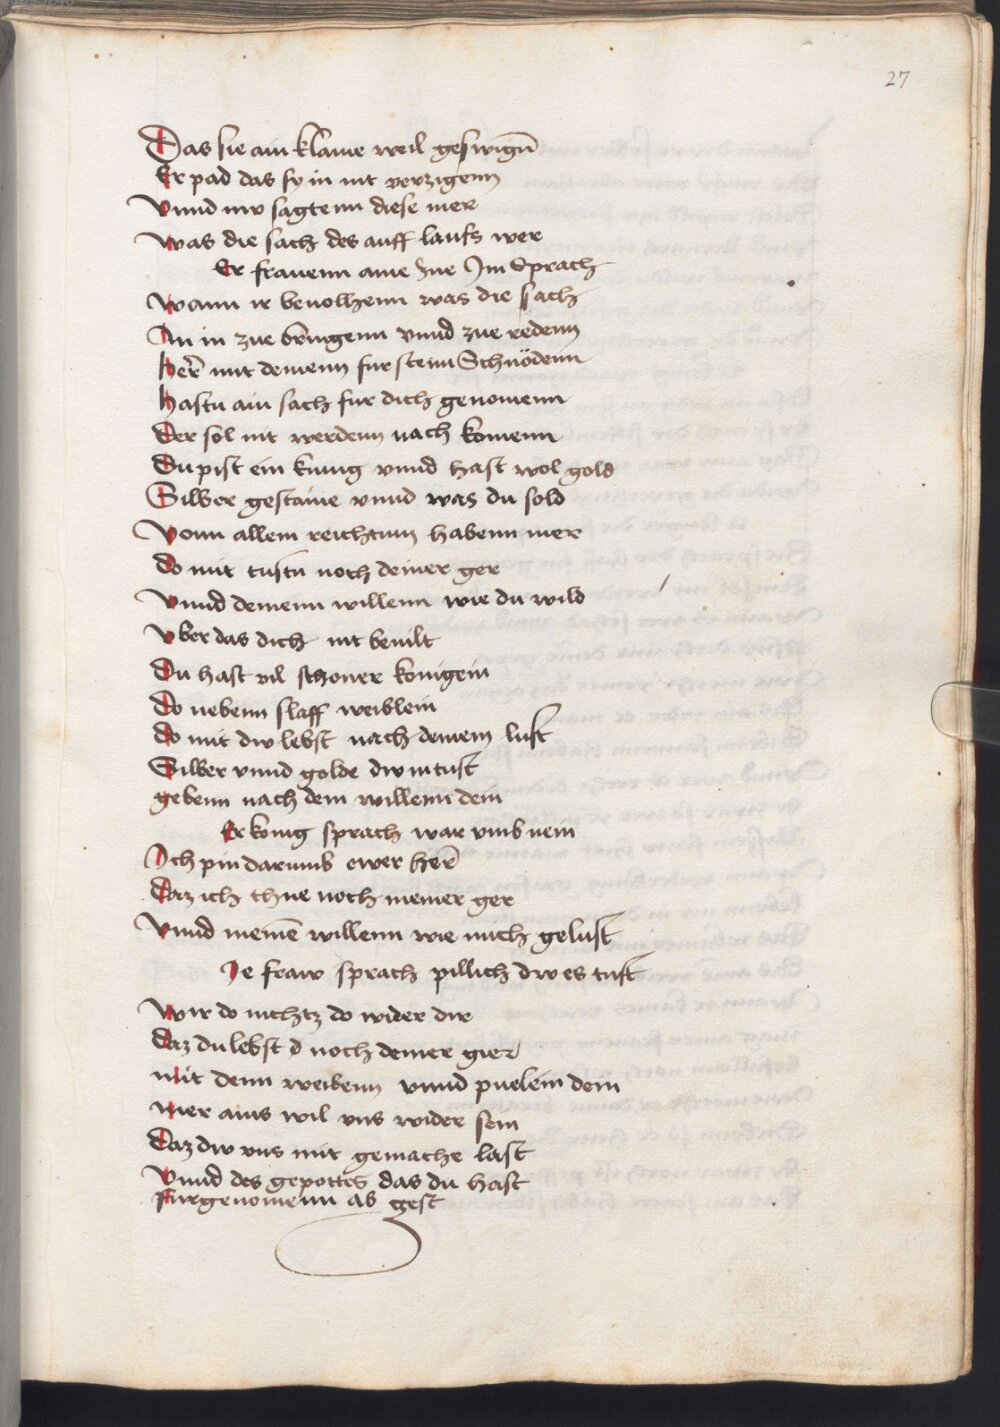 27
Das sie ain klaine weil geswigñ
Er pad das sy in nit verzigenn
Vnnd nw sagtenn diese mer
Was die sach des auff laufs wer
Er frauenn aine zue Jm Sprach
Wann ir beuolhenn was die sach
An in zue bringenn vnnd zue redenn
her̄ mit deinenn furstenn Schnödenn
hastu ain sach fur dich genomenn
Der sol nit werdenn nach komenn
Du pist ein kunig vnnd hast wol gold
Silber gestaine vnnd was du sold
Vonn allem reichtum habenn mer
Do mit tustu noch deiner ger
Vnnd deinenn willenn wie du wild
Vber das dich nit beuilt
Du hast vil schoner konigein
Do nebenn slaff weiblein
do mit dw lebst nach deinem lust
Silber vnnd golde dw mtust
gebenn nach dem willenn dein
Er konig sprach war vmb nein
Ich pin darumb ewer her̄
Daz ich thue noch meiner ger
Vnnd meinē willenn wie mich gelust
Je fraw sprach pillich dw es tust
Wir do nichtz do wider dir
Daz du lebst d noch deiner gier
Mit denn weibenn vnnd puelein dein
Nier ains wil vns wider sein
Daz dw vns mit gemache last
Vnnd des gepottes das du hast
Furgenomenn ab gest